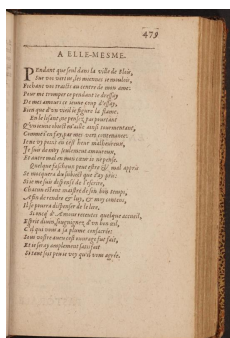 479
A ELLE-MESME.
Pendant que seul dans la ville de Blois,
Sur vos vertus, ie
Fichant vos traicts au centre de mon ame:
Pour me tromper ce pendant ie dressay
De mes amours ce ieune coup d'essay,
Bien que d'un vieil ie figure la flame.
En le lisant, ne pensez pas pourtant
Qu'un ieune obiect m'aille ainsi tourmentant,
Comme i'en fay par mes vers contenance:
Ie n'y puis cest heur malheureux,
Ie suis du amoureux,
Et autre mal en mon cœur ie ne pense.
Quelque fascheux peut estre & mal appris
Se mocquera du subiect que i'ay pris:
Ie ne me suis deffensif de l'escrire,
Chacun est maistre de son bon temps,
Afin de rendre & luy, & moy contens,
Il se pourra dispenser de le lire,
Si
Esprit divin, d'un bon œil,
C'est qui vous a sa plume consacrée:
Sous vostre aveu cest ouvrage fut fait,
Et ie seray amplement satisfait
Si tant soit peu ie voy qu'il vous agrée.